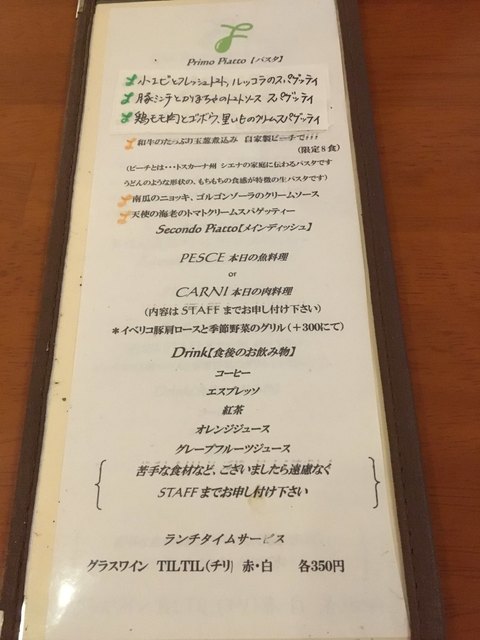 Primo Piatto【パスタ】
小エビとフレッシュトマト、ルッコラのスパゲッティ
豚ミンチとかぼちゃのトマトソース スパゲッティ
鶏モモ肉とゴボウ、黒いものクリームスパゲッティ
和牛のたっぷり玉葱煮込み 自家製ピーチで♪♪♪
(限定8食)
(ピーチとは・・・トスカーナ州 シエナの家庭に伝わるパスタです
うどんのような形状の、もちもちの食感が特徴の生パスタです)
南瓜のニョッキ、ゴルゴンゾーラのクリームソース
天使の海老のトマトクリームスパゲッティー
Secondo Piatto【メインディッシュ】
PESCE 本日の魚料理
or
CARNI 本日の肉料理
(内容は STAFF までお申し付け下さい)
*イベリコ豚肩ロースと季節野菜のグリル(+300にて)
Drink【食後のお飲み物】
コーヒー
エスプレッソ
紅茶
オレンジジュース
グレープフルーツジュース
苦手な食材など、ございましたら遠慮なく
STAFF までお申し付け下さい
ランチタイムサービス
グラスワイン TILTIL(チリ) 赤・白 各350円